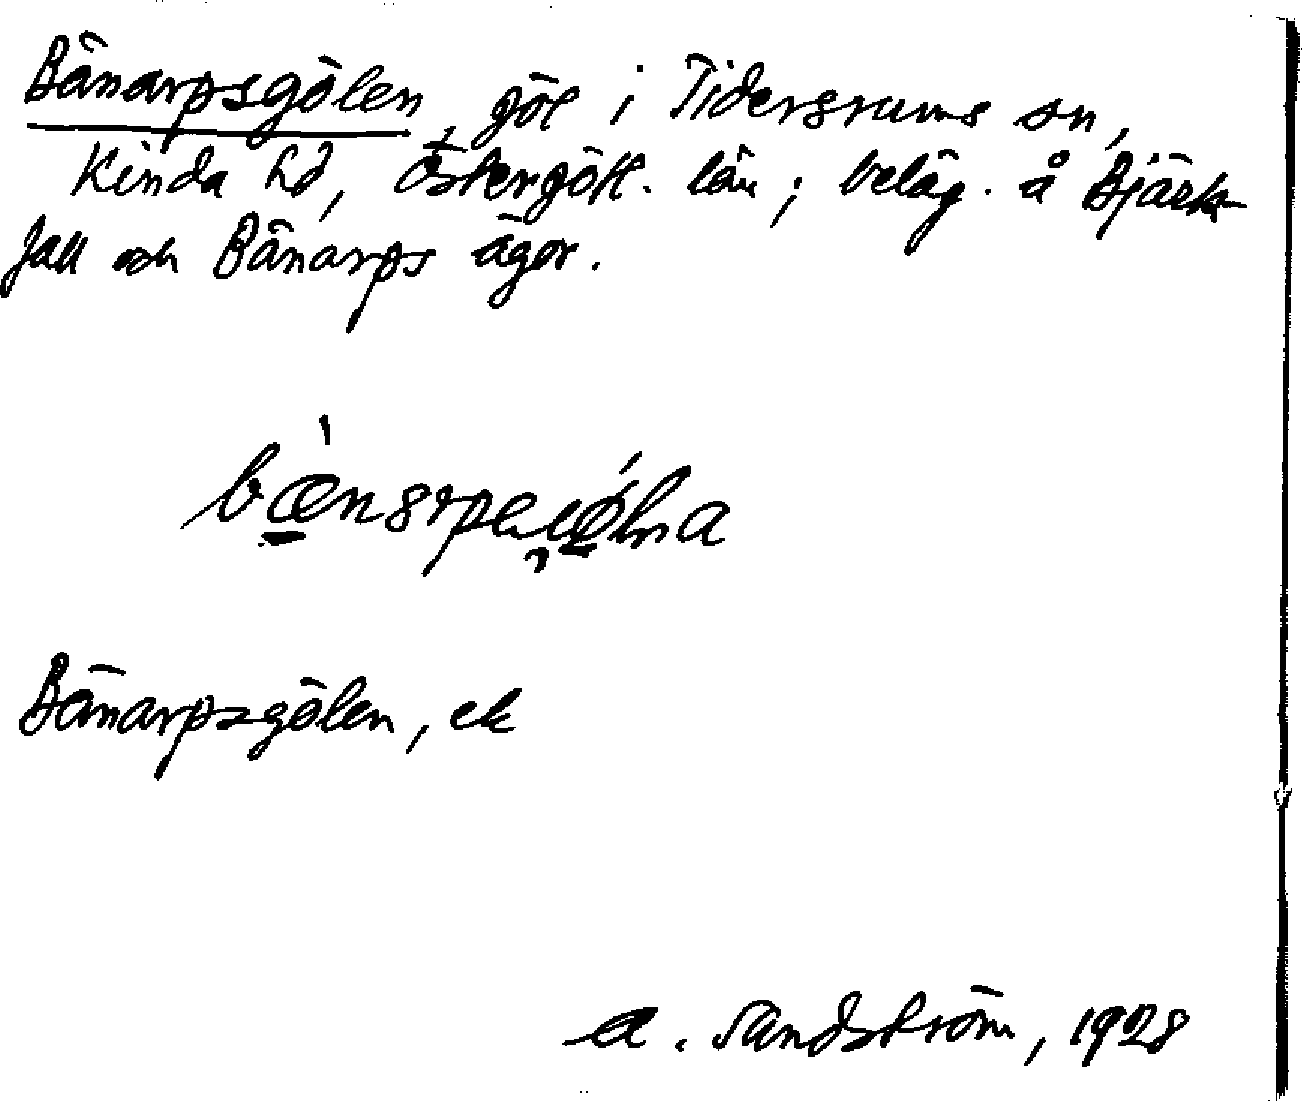 Bänarpsgölen, göl i Tidersrums sn,
Kinda hd, Östergötl. län; beläg. å Bjärk
fall och Bänarps ägor.
Bänarpsgölen, ek
A. Sandström, 1928